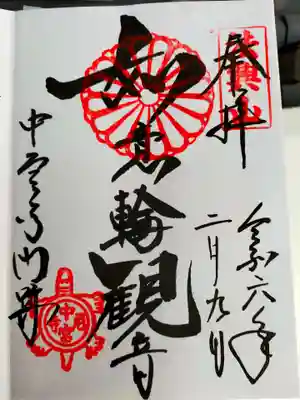 奉拝
令和六年
二月九日
如意輪観音
中宮寺門跡